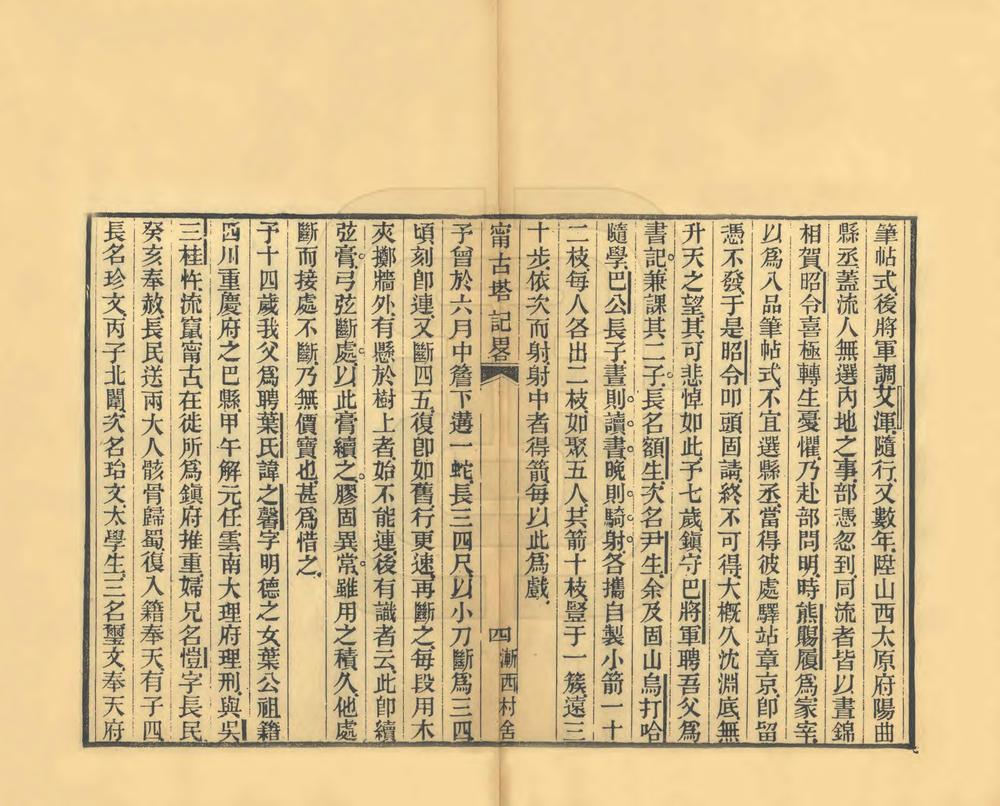 筆帖式後將軍調艾渾隨行又數年陞山西太原府陽曲
縣丞蓋流人無選內地之事部憑忽到同流者皆以晝錦
相賀昭令喜極轉生憂懼乃赴部問明時熊賜履爲冢宰
以爲八品筆帖式不宜選縣丞當得彼處驛站章京卽留
憑不發于是昭令叩頭固請終不可得大槪久沈淵底無
升天之望其可悲悼如此予七歲鎭守巴將軍聘吾父爲
書記兼課其二子長名額生次名尹生余及固山烏打哈
隨學巴公長子晝則讀書晚則騎射各攜自製小箭一十
二枝每人各出二枝如聚五人共箭十枝豎于一簇遠三
十步依次而射射中者得箭每以此爲戲
甯古塔記畧 四 漸西村舍
予曾於六月中簷下遘一蛇長三四尺以小刀斷爲三四
頃刻卽連又斷四五復卽如舊行更速再斷之每段用木
夾擲牆外有懸於樹上者始不能連後有識者云此卽續
弦膏弓弦斷處以此膏續之膠固異常雖用之積久他處
斷而接處不斷乃無價寶也甚爲惜之
予十四歲我父爲聘葉氏諱之馨字明德之女葉公祖籍
四川重慶府之巴縣甲午解元任雲南大理府理刑與吳
三桂忤流竄甯古在徙所爲鎭府推重婦兄名愷字長民
癸亥奉赦長民送兩大人骸骨歸蜀復入籍奉天有子四
長名珍文丙子北闈次名珆文太學生三名璽文奉天府